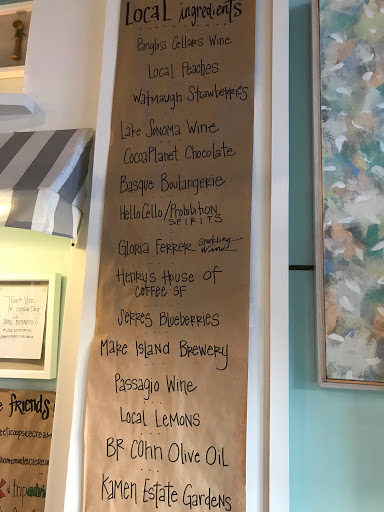 Local ingredients
Pangloss Cellars Wine
Local Peaches
Watmaugh Strawberries
Lake Sonoma Wine
CocoaPlanet Chocolate
Basque Boulangerie
HelloCello/Prohibition
SPIRITS
Gloria Ferrer sparkling
wine
Henry's House of
Coffee SF
Serres Blueberries
Make Island Brewery
Passagio Wine
Local Lemons
BR Cohn Olive Oil
Kamen Estate Gardens
Thank you
for supporting
small business!
friends